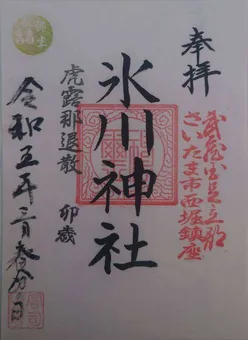 奉拝
武蔵国足立郡
さいたま市西堀鎮座
氷川神社
虎露那退散
卯歳
令和五年二月春分の日